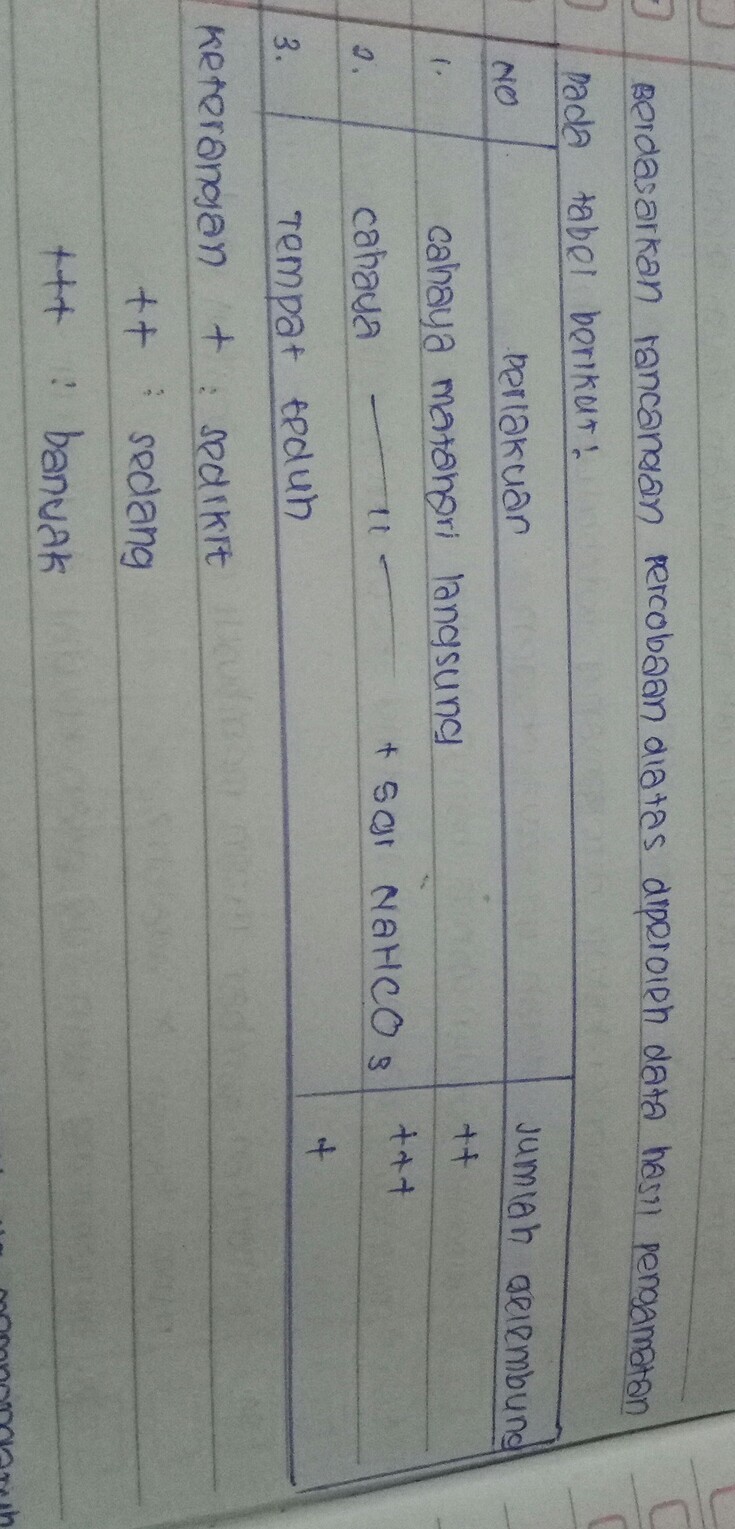 Berdasarkan rancangan percobaan diatas diperoleh data hasil pengamatan
Pada tabel berikut:
NO Perlakuan Jumlah gelembung
1. cahaya matahari langsung ++
2. cahaya —— 11 —— + 5gr NaHCO3 +++
3. Tempat teduh +
Keterangan + : sedikit
++ : sedang
+++ : banyak